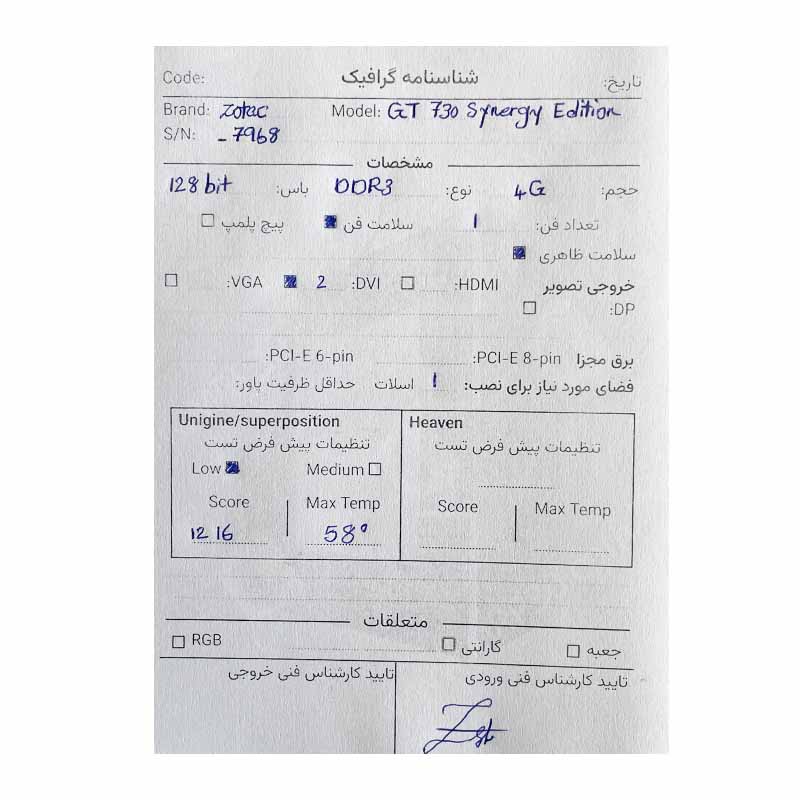 Code: شناسنامه گرافیک تاریخ:
Brand: Zotac Model: GT 730 Synergy Edition
S/N: _ 7968
مشخصات
حجم: 4G نوع: DDR3 باس: 128 bit
تعداد فن: 1 سلامت فن پیچ پلمپ
سلامت ظاهری
خروجی تصویر HDMI: DVI: 2 VGA:
DP:
برق مجزا PCI-E 8-pin: PCI-E 6-pin:
فضای مورد نیاز برای نصب: 1 اسلات حداقل ظرفیت پاور:
Unigine/superposition Heaven
تنظیمات پیش فرض تست تنظیمات پیش فرض تست
Low Medium
Score Max Temp Score Max Temp
1216 58°
متعلقات
جعبه گارانتی RGB
تایید کارشناس فنی ورودی تایید کارشناس فنی خروجی